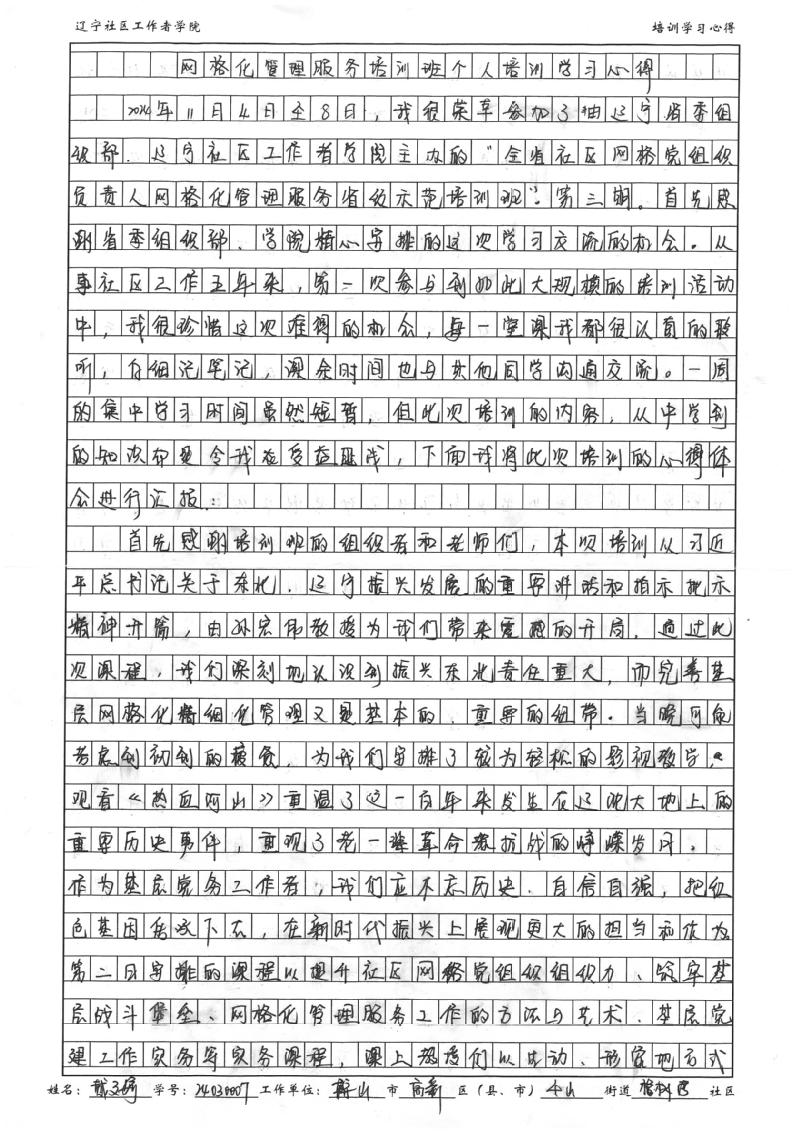 辽宁社区工作者学院 培训学习心得
网格化管理服务培训班个人培训学习心得
2024年11月4日至8日,我很荣幸参加了由辽宁省委组
织部、辽宁社区工作者学院主办的“全省社区网格党组织
负责人网格化管理服务省级示范培训班”第三期。首先感
谢省委组织部、学院精心安排的这次学习交流的机会。从
事社区工作五年来,第一次参与到如此大规模的培训活动
中,我很珍惜这次难得的机会,每一堂课我都很认真的聆
听,仔细记笔记,课余时间也与其他同学沟通交流。一周
的集中学习时间虽然短暂,但此次培训的内容,从中学到
的知识都是令我在受益匪浅,下面我将此次培训的心得体
会进行汇报:
首先感谢培训班的组织者和老师们,本次培训从习近
平总书记关于东北、辽宁振兴发展的重要讲话和指示批示
精神开篇,由孙宏伟教授为我们带来震撼的开局。通过此
次课程,我们深刻地认识到振兴东北责任重大,而完善基
层网格化精细化管理又是基本的、重要的纽带。当晚可能
考虑到初到的疲惫,为我们安排了较为轻松的影视教学,
观看《热血河山》重温了这一百年来发生在辽沈大地上的
重要历史事件,重现了老一辈革命者抗战的峥嵘岁月。
作为基层党务工作者,我们应不忘历史、自信自强,把红
色基因传承下去,在新时代振兴上展现更大的担当和作为
第二日安排的课程以提升社区网格党组织组织力、筑牢基
层战斗堡垒、网格化管理服务工作的方法与艺术、基层党
建工作实务等实务课程,课上教授们以生动、形象地方式
姓名: 学号:24030007 工作单位:鞍山 市 高新 区(县、市) 千山 街道 社区